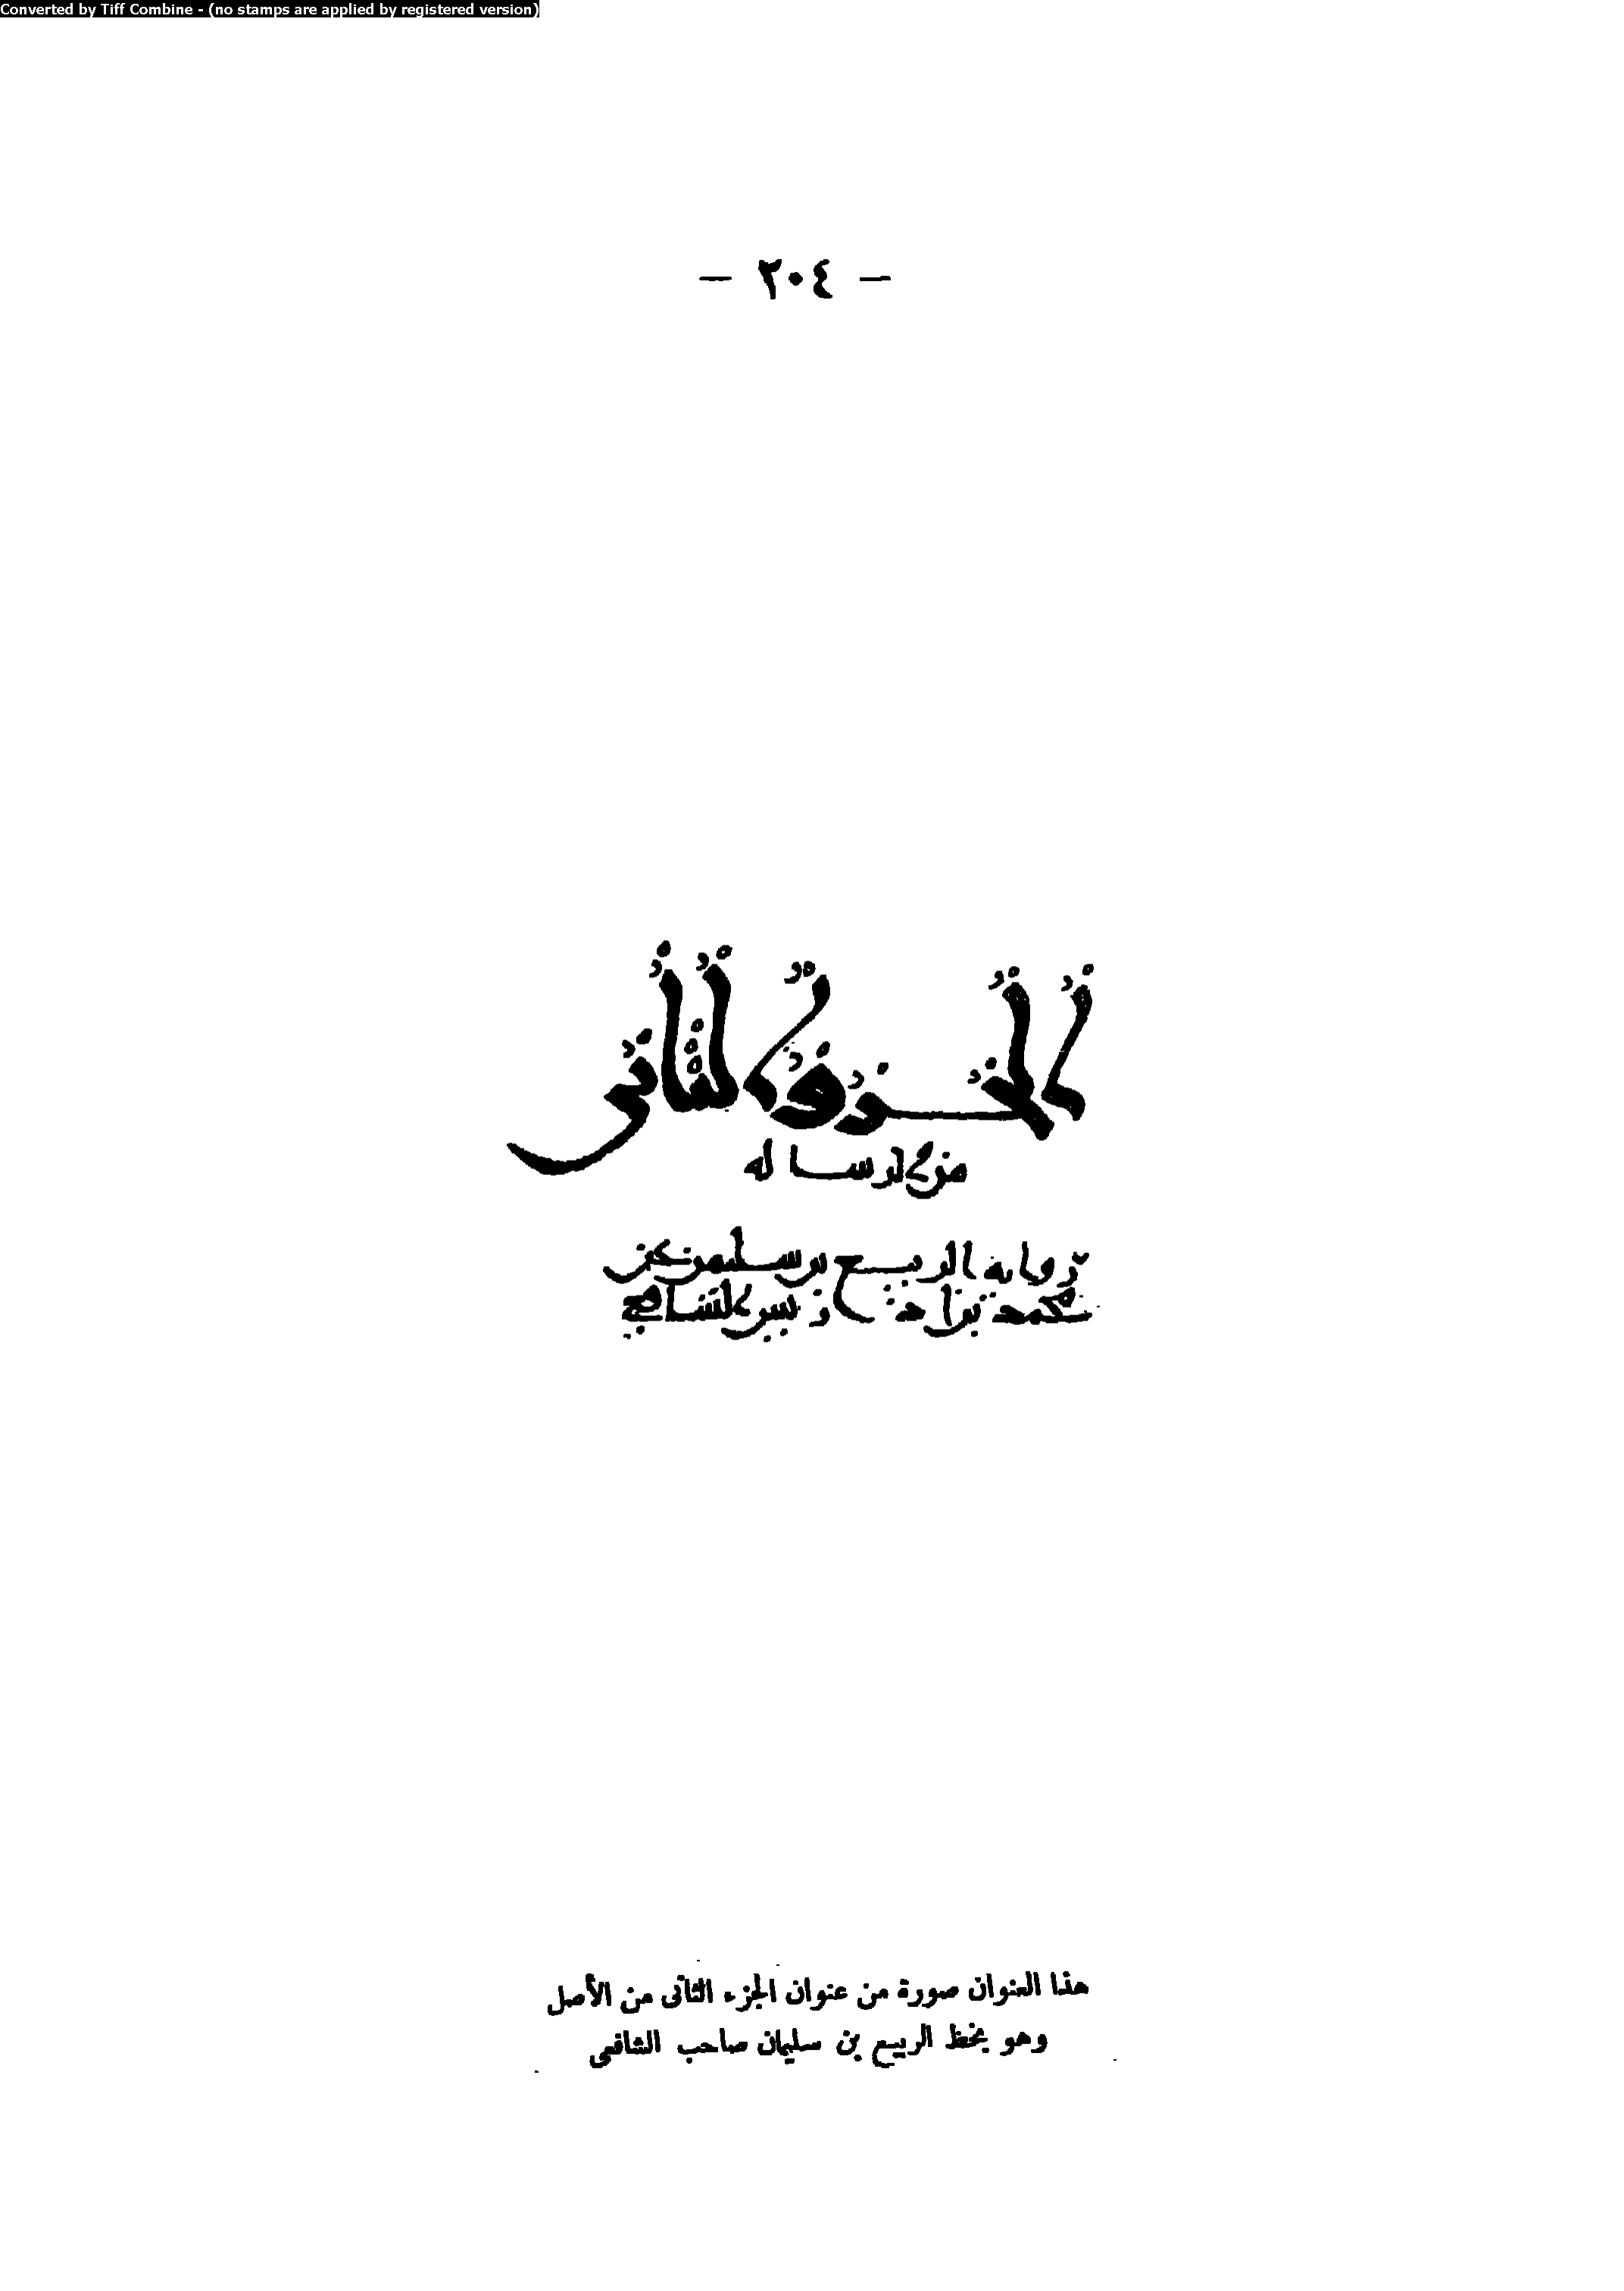 Converted by Tiff Combine - (no stamps are applied by registered version)
— ٢٠٤ —
الجزو الثانى
من الرساله
روايه الربيع بن سليمن عن
محمد بن ادريس الشافعي
هذا العنوان صورة من عنوان الجزء الثانى من الأصل
وهو بخط الربيع بن سليمان صاحب الشافعى